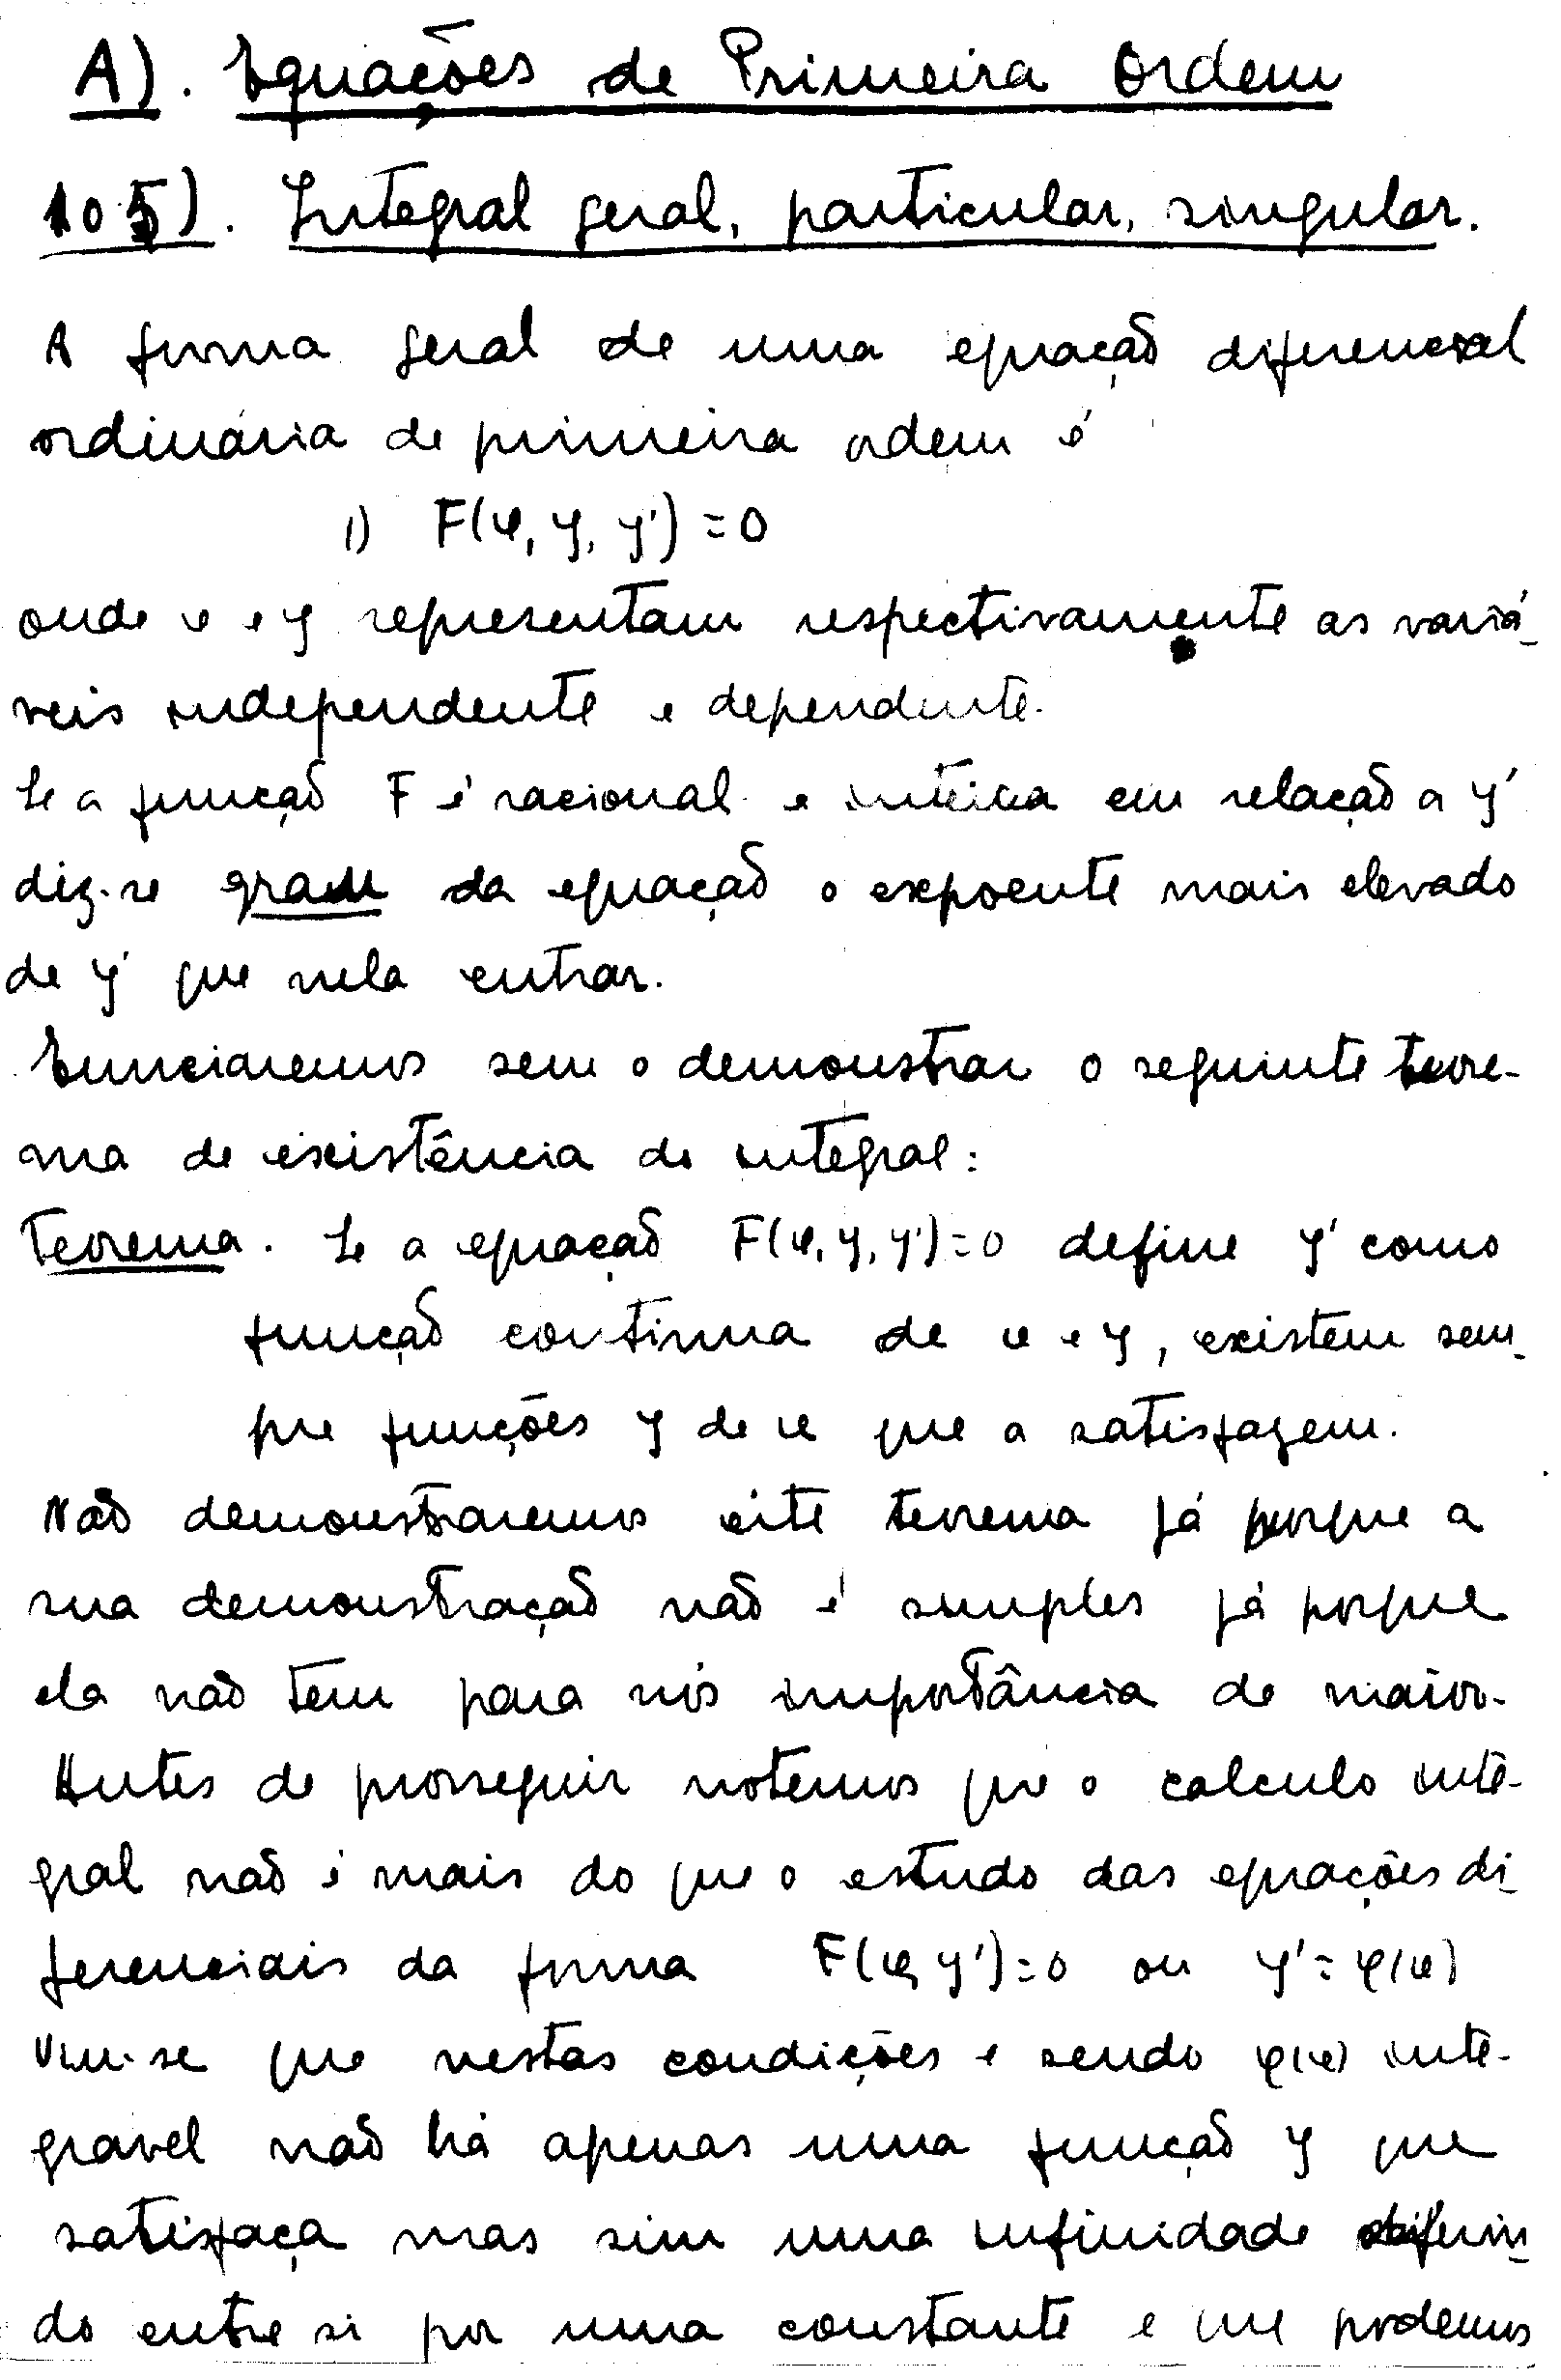 A). Equações de Primeira Ordem
105). Integral geral, particular, singular.
A forma geral de uma equação diferencial
ordinária de primeira ordem é
1) F(x, y, y') = 0
onde x e y representam respectivamente as variá-
veis independente e dependente.
Se a função F é racional e inteira em relação a y'
diz-se grau da equação o expoente mais elevado
de y' que nela entrar.
Enunciaremos sem o demonstrar o seguinte teore-
ma de existência do integral:
Teorema. Se a equação F(x, y, y')=0 define y' como
função continua de x e y, existem sem-
pre funções y de x que a satisfazem.
Não demonstraremos este teorema já porque a
sua demonstração não é simples já porque
ela não tem para nós importância de maior.
Antes de prosseguir notemos que o calculo inte-
gral não é mais do que o estudo das equações di-
ferenciais da forma F(x, y')=0 ou y'= φ(x)
Viu-se que nestas condições e sendo φ(x) inte-
gravel não há apenas uma função y que
satisfaça mas sim uma infinidade diferin-
do entre si por uma constante e que podemos